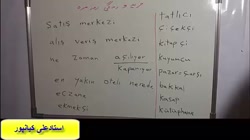 Satış merkezi
alış veriş merkezi
ne zaman açılıyor
kapanıyor
en yakın oteli nerede
eczane
ekmekçi
tatlıcı
kitapçı
kuyumcu
pazar çarşı
bakkal
kasap
kütüphane
استادعلی کیانپور